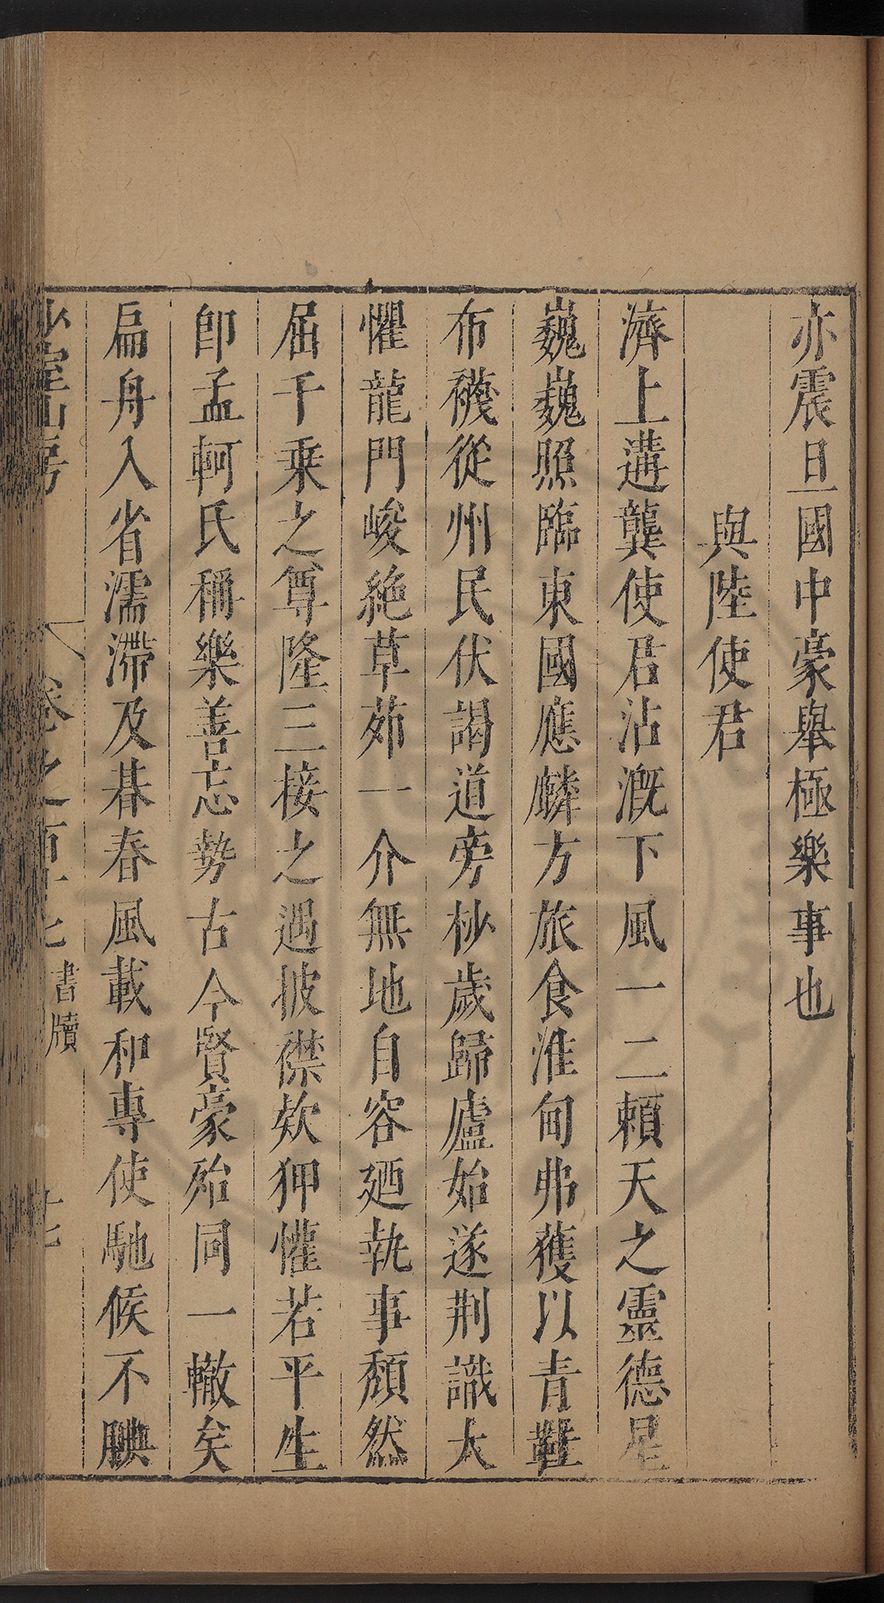 亦震旦國中豪舉極樂事也
與陸使君
濟上遘龔使君沾溉下風一二賴天之靈德星
巍巍照臨東國應麟方旅食淮甸弗獲以青鞋
布襪從州民伏謁道旁杪歲歸廬始遂荆識大
懼龍門峻絶草茹一介無地自容廼執事頽然
屈千乘之尊隆三接之遇披襟欵狎懽若平生
卽孟軻氏稱樂善忘勢古今賢豪殆同一轍矣
扁舟入省濡滯及暮春風載和專使馳候不腆
少室山房
卷之百十七 書牘